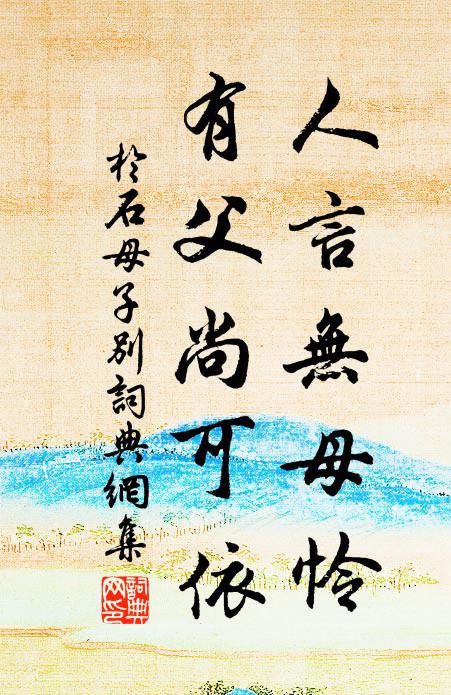 人言無母怜
有父尚可依
於石母子别詞典網集
詞典网印